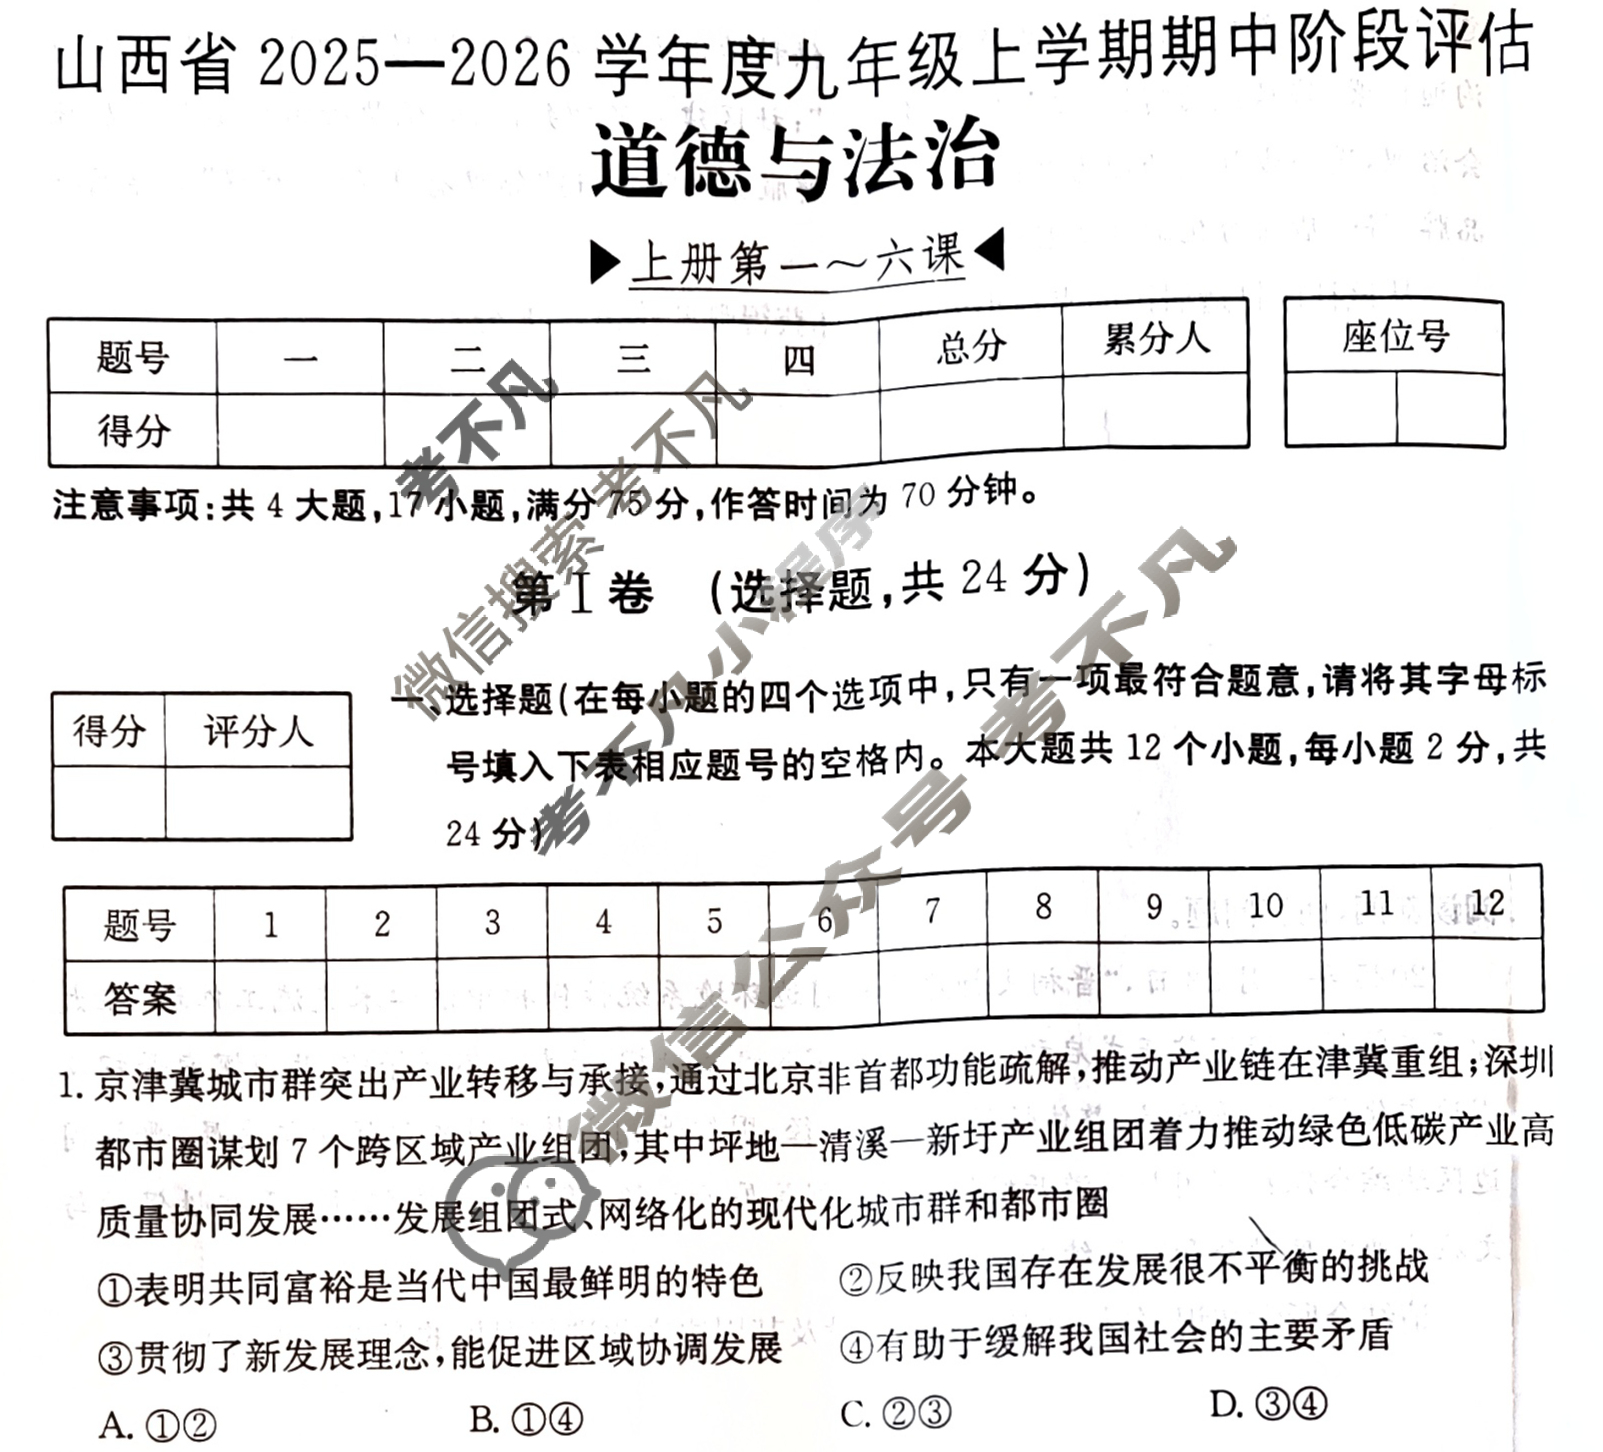 山西省 2025—2026 学年度九年级上学期期中阶段评估
道德与法治
▶上册第一～六课◀
题号 一 二 三 四 总分 累分人 座位号
得分
注意事项:共 4 大题,17 小题,满分 75 分,作答时间为 70 分钟。
第 I 卷 (选择题,共 24 分)
得分 评分人
一、选择题(在每小题的四个选项中,只有一项最符合题意,请将其字母标
号填入下表相应题号的空格内。本大题共 12 个小题,每小题 2 分,共
24 分)
题号 1 2 3 4 5 6 7 8 9 10 11 12
答案
1. 京津冀城市群突出产业转移与承接,通过北京非首都功能疏解,推动产业链在津冀重组;深圳
都市圈谋划 7 个跨区域产业组团,其中坪地—清溪—新圩产业组团着力推动绿色低碳产业高
质量协同发展……发展组团式、网络化的现代化城市群和都市圈
①表明共同富裕是当代中国最鲜明的特色 ②反映我国存在发展很不平衡的挑战
③贯彻了新发展理念,能促进区域协调发展 ④有助于缓解我国社会的主要矛盾
A. ①② B. ①④ C. ②③ D. ③④
考不凡
微信搜索 考不凡
考不凡小程序
微信公众号 考不凡